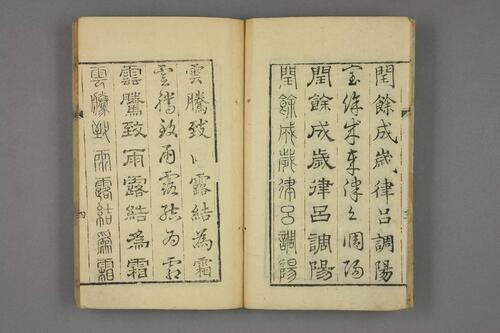 閏餘成歲律呂調陽
閏餘成歲律呂調陽
閏餘成歲律呂調陽
閏餘成歲律呂調陽
雲騰致雨露結為霜
雲騰致雨露結為霜
雲騰致雨露結爲霜
雲騰致雨露結爲霜